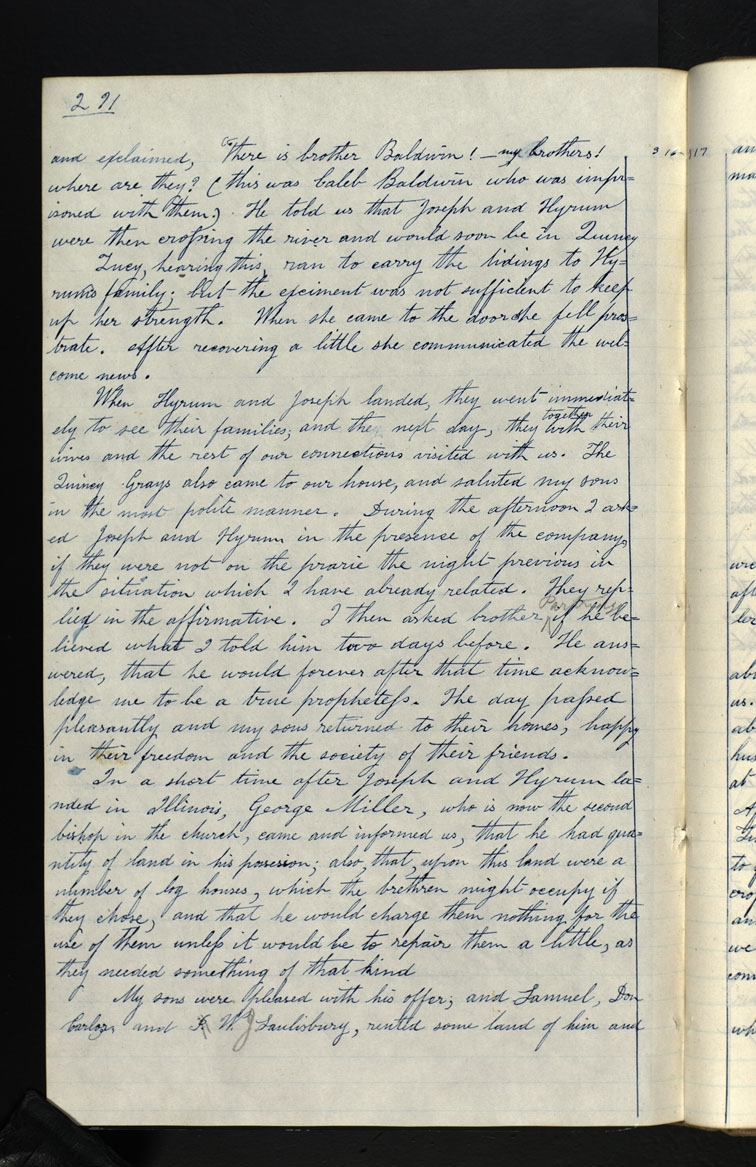 291
and exclaimed, "There is brother Baldwin! — my brothers!
where are they? (this was Caleb Baldwin who was impr=
isoned with them.) He told us that Joseph and Hyrum
were then crossing the river and would soon be in Quincy
Lucy, hearing this, ran to carry the tidings to Hy=
rum's family; but the exciment was not sufficient to keep
up her strength. When she came to the door she fell pros=
trate. After recovering a little she communicated the wel=
come news.
When Hyrum and Joseph landed, they went immediat=
ely to see their families; and the next day, they together with their
wives and the rest of our connections visited with us. The
Quincy Grays also came to our house, and saluted my sons
in the most polite manner. During the afternoon I ask=
ed Joseph and Hyrum in the presence of the company,
if they were not on the prarie the night previous in
the situation which I have already related. They rep=
lied in the affirmative. I then asked brother Partridge if he be=
lieved what I told him two days before. He ans=
wered, that he would forever after that time acknow=
ledge me to be a true prophetess. The day passed
pleasantly and my sons returned to their homes, happy
in their freedom and the society of their friends.
In a short time after Joseph and Hyrum la=
nded in Illinois, George Miller, who is now the second
bishop in the church, came and informed us, that he had qua=
ntity of land in his possesion; also, that, upon this land were a
number of log houses, which the brethren might occupy if
they chose, and that he would charge them nothing for the
use of them unless it would be to repair them a little, as
they needed something of that kind
My sons were pleased with his offer; and Samuel, Don
Carlos, and W. J. Saulisbury, rented some land of him and